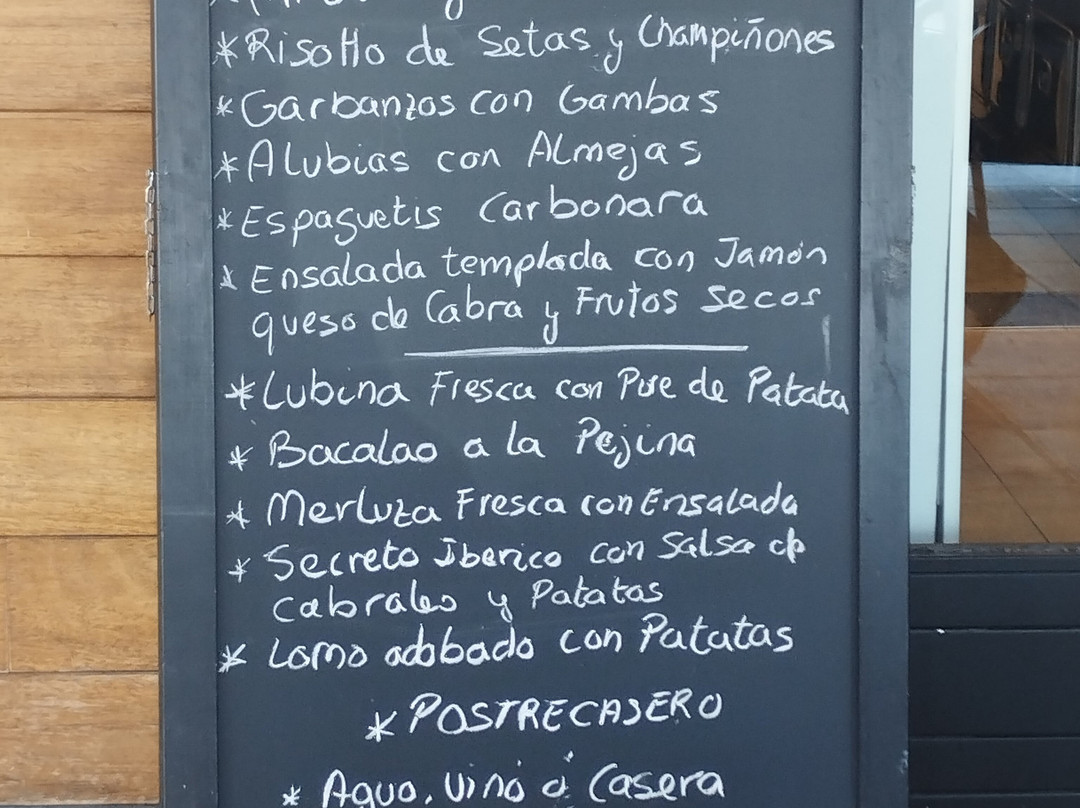 * Risotto de Setas y Champiñones
* Garbanzos con Gambas
* Alubias con Almejas
* Espaguetis Carbonara
* Ensalada templada con Jamón
queso de Cabra y Frutos Secos
* Lubina Fresca con Pure de Patata
* Bacalao a la Pejina
* Merluza Fresca con Ensalada
* Secreto Iberico con Salsa de
Cabrales y Patatas
* Lomo adobado con Patatas
* POSTRE CASERO
* Agua, Vino ó Casera